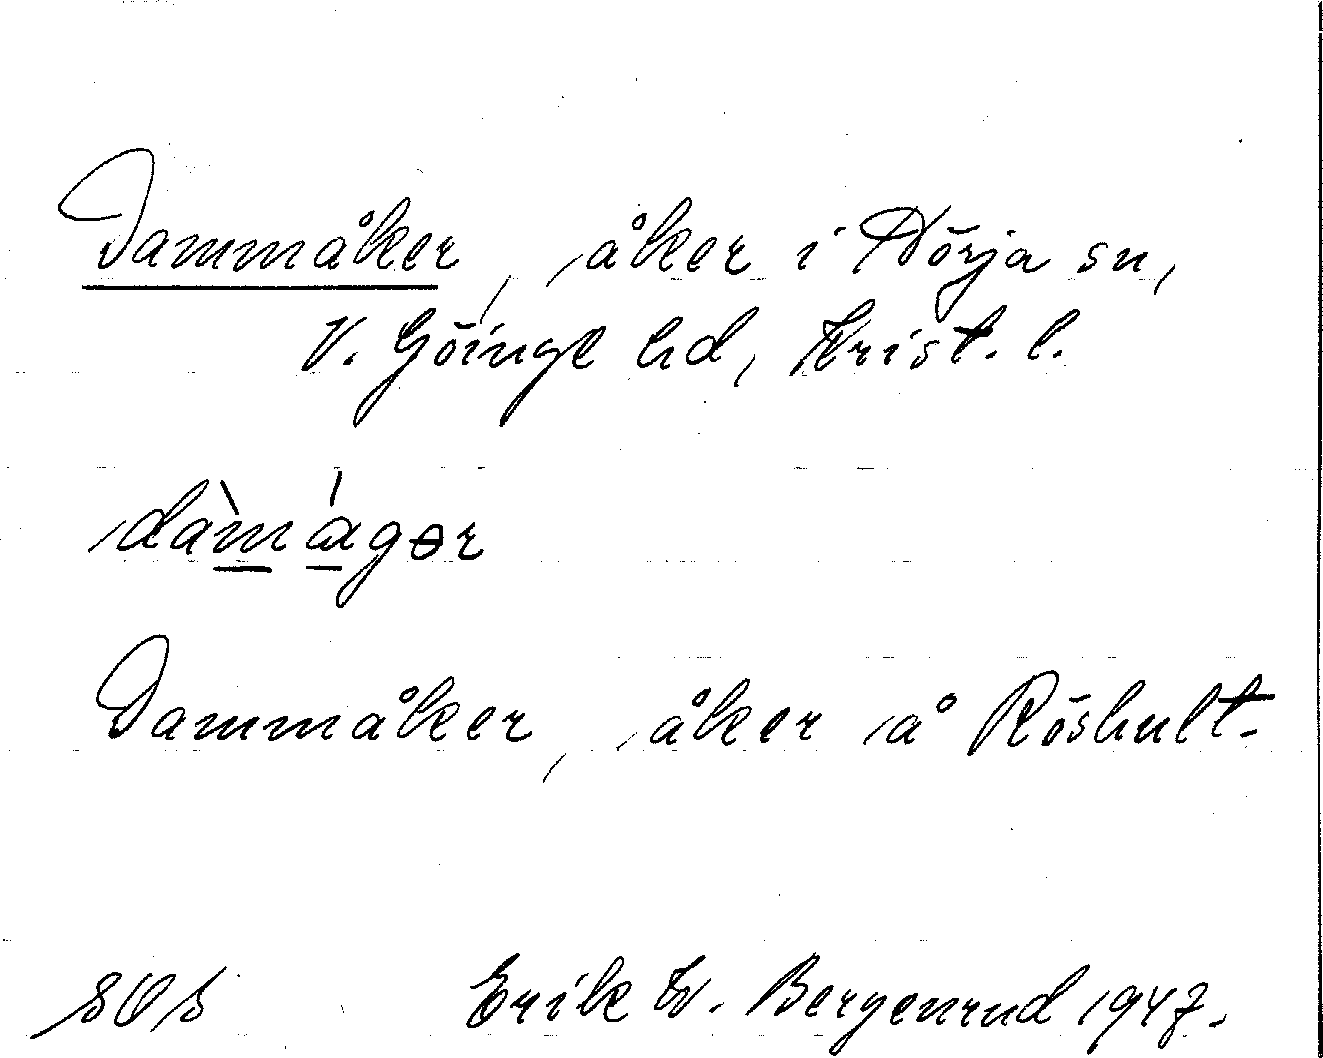 Dammåker, åker i Nörja sn,
V. Göinge hd, Krist. l.
dàmágər
Dammåker, åker å Röshult.
SOS Erik W. Bergenrud 1947.